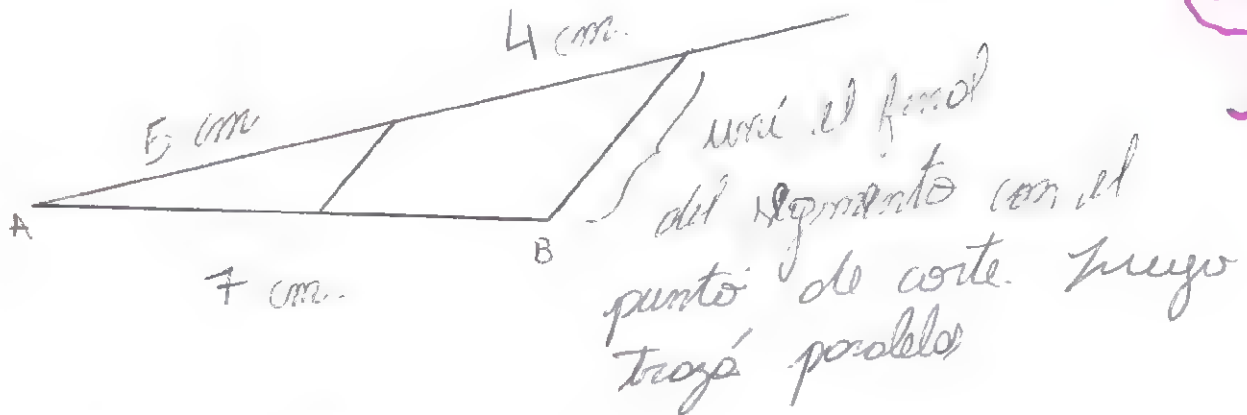 4 cm.
5 cm
A
B
7 cm.
uní el final
del segmento con el
punto de corte. Luego
trazá paralelas